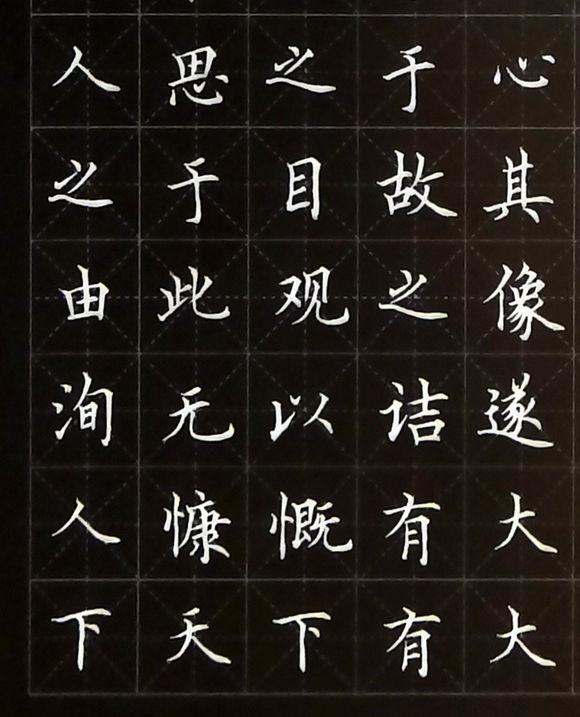 人思之于心
之于目故其
由此观之像
洵无以诘遂
人慷慨有大
下天下有大